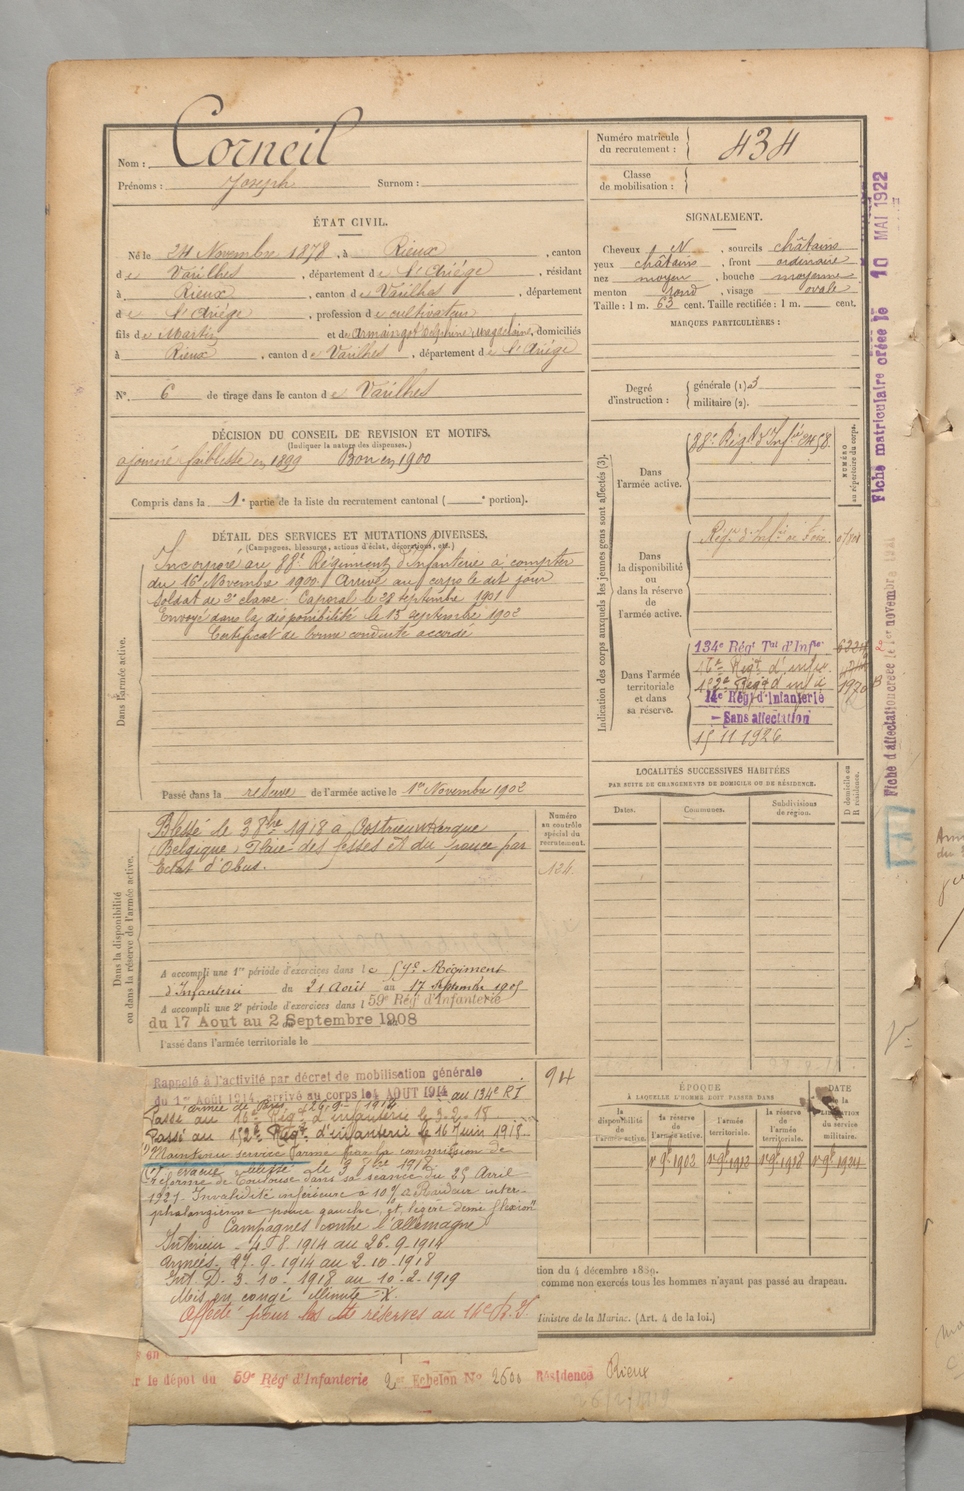 Nom : Corneil
Prénoms : Joseph Surnom :
Numéro matricule du recrutement : 434
Classe de mobilisation :
ÉTAT CIVIL.
Né le 24 Novembre 1878, à Rieux, canton
de Varilhes, département de l'Ariège, résidant
à Rieux, canton de Varilhes, département
de l'Ariège, profession de cultivateur
fils de Martin et de Armaingot Delphine Magdelaine, domiciliés
à Rieux, canton de Varilhes, département de l'Ariège
N°. 6 de tirage dans le canton de Varilhes
SIGNALEMENT.
Cheveux N, sourcils châtains
yeux châtains, front ordinaire
nez moyen, bouche moyenne
menton rond, visage ovale
Taille : 1 m. 63 cent. Taille rectifiée : 1 m. cent.
MARQUES PARTICULIÈRES :
DÉCISION DU CONSEIL DE REVISION ET MOTIFS.
(Indiquer la nature des dispenses.)
ajourné faiblesse en 1899 Bon en 1900
Compris dans la 1e partie de la liste du recrutement cantonal ( e portion).
Degré d'instruction :
générale (1) 3
militaire (2).
DÉTAIL DES SERVICES ET MUTATIONS DIVERSES.
(Campagnes, blessures, actions d'éclat, décorations, etc.)
Dans l'armée active.
Incorporé au 88e Régiment d'Infanterie à compter
du 16 Novembre 1900. Arrivé au corps le dit jour
Soldat de 2e classe. Caporal le 28 septembre 1901
Envoyé dans la disponibilité le 15 septembre 1902
Certificat de bonne conduite accordé
Passé dans la réserve de l'armée active le 1er Novembre 1902
Indication des corps auxquels les jeunes gens sont affectés (3).
NUMÉRO au répertoire du corps.
Dans l'armée active.
88e Régt d'Infie 8458
Dans la disponibilité ou dans la réserve de l'armée active.
Régt d'Infie de Foix
Dans l'armée territoriale et dans sa réserve.
134e Régt Tal d'Infie
16e Régt d'infie
152e Régt d'infie
14e Régt d'Infanterie
- Sans affectation
15 11 1926
Fiche matriculaire créée le 10 MAI 1922
Fiche d'affectation créée le 1er novembre
LOCALITÉS SUCCESSIVES HABITÉES
PAR SUITE DE CHANGEMENTS DE DOMICILE OU DE RÉSIDENCE.
Dates. Communes. Subdivisions de région.
D domicile ou R résidence.
Dans la disponibilité ou dans la réserve de l'armée active.
Numéro au contrôle spécial du recrutement.
Blessé le 3 8bre 1918 à
(Belgique) Plaie des fesses et du pouce par
Eclat d'Obus.
A accompli une 1re période d'exercices dans le 59e Régiment
d'Infanterie du 21 Août au 17 Septembre 1905
A accompli une 2e période d'exercices dans l 59e Rég d'Infanterie
du 17 Aout au 2 Septembre 1908
Passé dans l'armée territoriale le
Rappelé à l'activité par décret de mobilisation générale
du 1er Août 1914, arrivé au corps le 4 AOUT 1914 au 134e RI
Passé au 16e Régt d'infanterie le 3-2-18
Passé au 152e Régt d'infanterie le 16 Juin 1918
Maintenu service armé par la commission de
et évacué blessé le 3 8bre 1918
réforme de Toulouse dans sa séance du 25 Avril
1921. Invalidité inférieure à 10% Raideur inter-
phalangienne pouce gauche, et légère demi flexion
Campagnes contre l'Allemagne
Intérieur - 4-8-1914 au 26-9-1914
Armées. 27-9-1914 au 2-10-1918
Int. D. 3-10-1918 au 10-2-1919
Mis en congé illimité
Affecté pour les réserves au 14e R.I.
914
ÉPOQUE
À LAQUELLE L'HOMME DOIT PASSER DANS
la disponibilité de l'armée active.
la réserve de l'armée active.
l'armée territoriale.
la réserve de l'armée territoriale.
DATE de la LIBÉRATION du service militaire.
tion du 4 décembre 1889.
comme non exercés tous les hommes n'ayant pas passé au drapeau.
Ministre de la Marine. (Art. 4 de la loi.)
r le dépôt du 59e Rég d'Infanterie 2e Echelon No 2500 Résidence Rieux